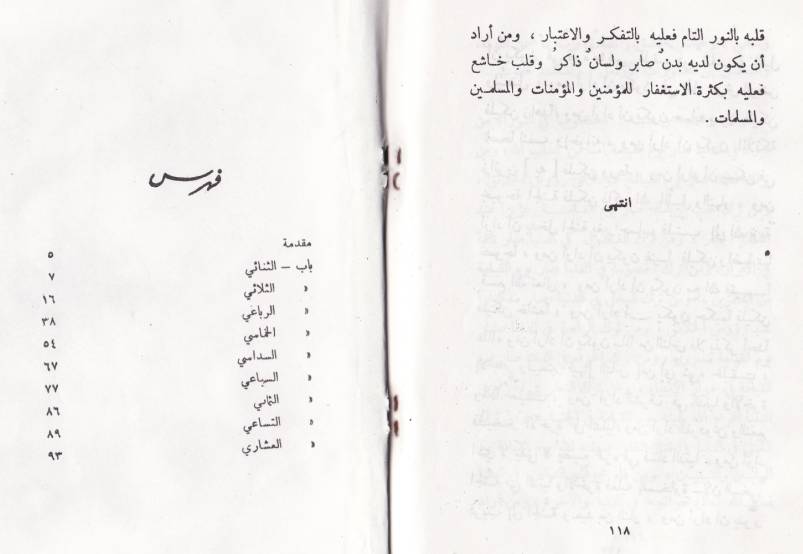 قلبه بالنور التام فعليه بالتفكر والاعتبار ، ومن أراد
أن يكون لديه بدنٌ صابر ولسانٌ ذاكرٌ وقلب خاشع
فعليه بكثرة الاستغفار للمؤمنين والمؤمنات والمسلمين
والمسلمات .
انتهى
١١٨
فهرس
مقدمة ٥
باب — الثنائي ٧
« الثلاثي ١٦
« الرباغي ٣٨
« الخماسي ٥٤
« السداسي ٦٧
« السباعي ٧٧
« الثماني ٨٦
« التساعي ٨٩
« العشاري ٩٣